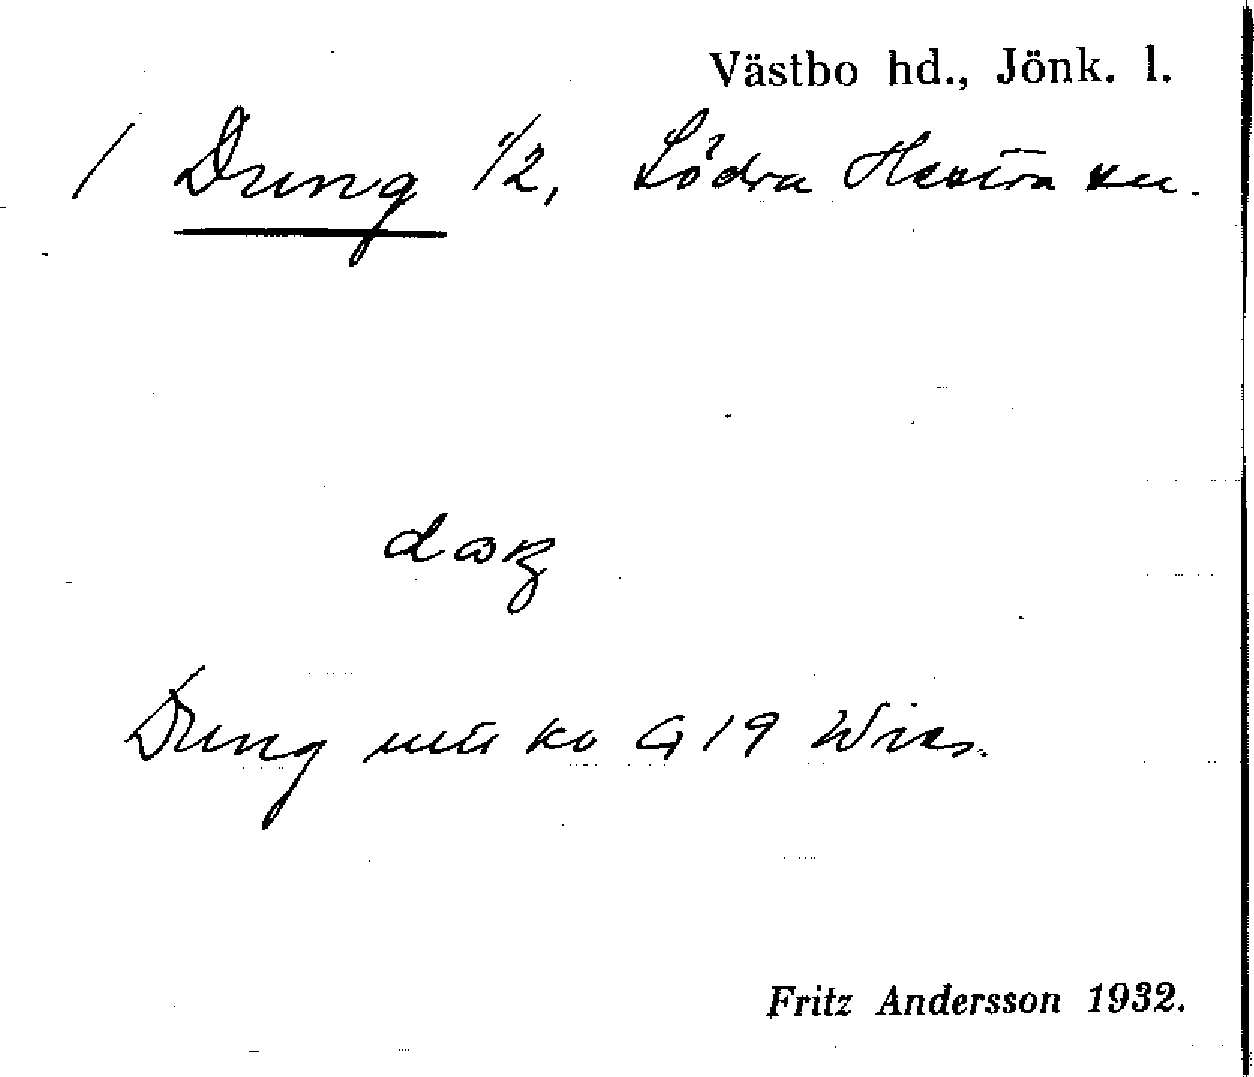 Västbo hd., Jönk. l.
/ Dung 1/2, Södra Hestra sn.
Dung G 19 Wies.
Fritz Andersson 1932.